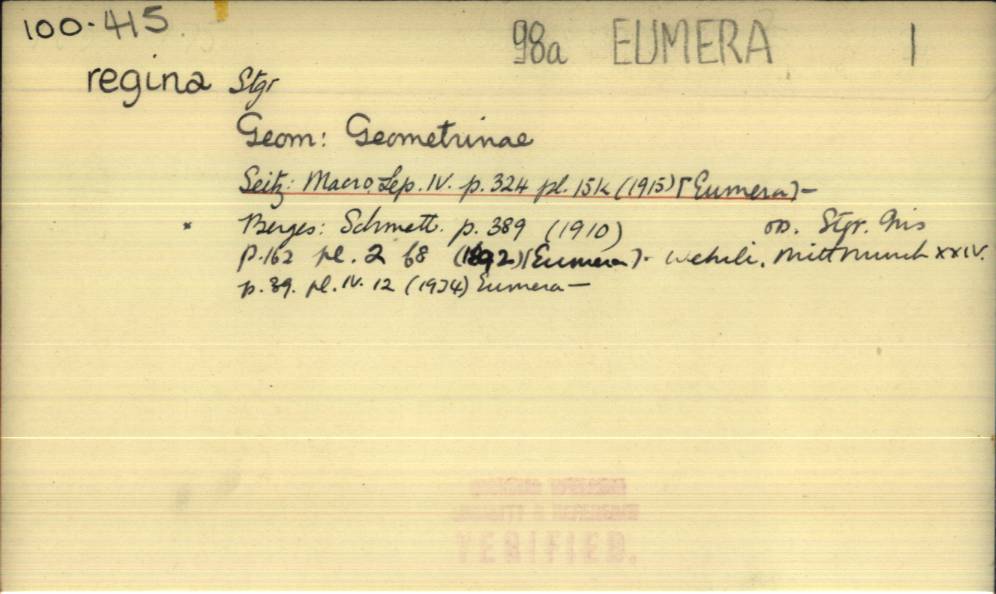 100-415
98a EUMERA 1
regina Stgr
Geom: Geometrinae
Seitz: Macro. Lep. IV. p. 324 pl. 15k (1915) [Eumera] —
* Berges: Schmett. p. 389 (1910) op. Stgr. Iris
p. 162 pl. 2 68 (1892) [Eumera] - Wehrli. Mitt Munch XXIV.
p. 39. pl. IV. 12 (1934) Eumera —
VERIFIED.